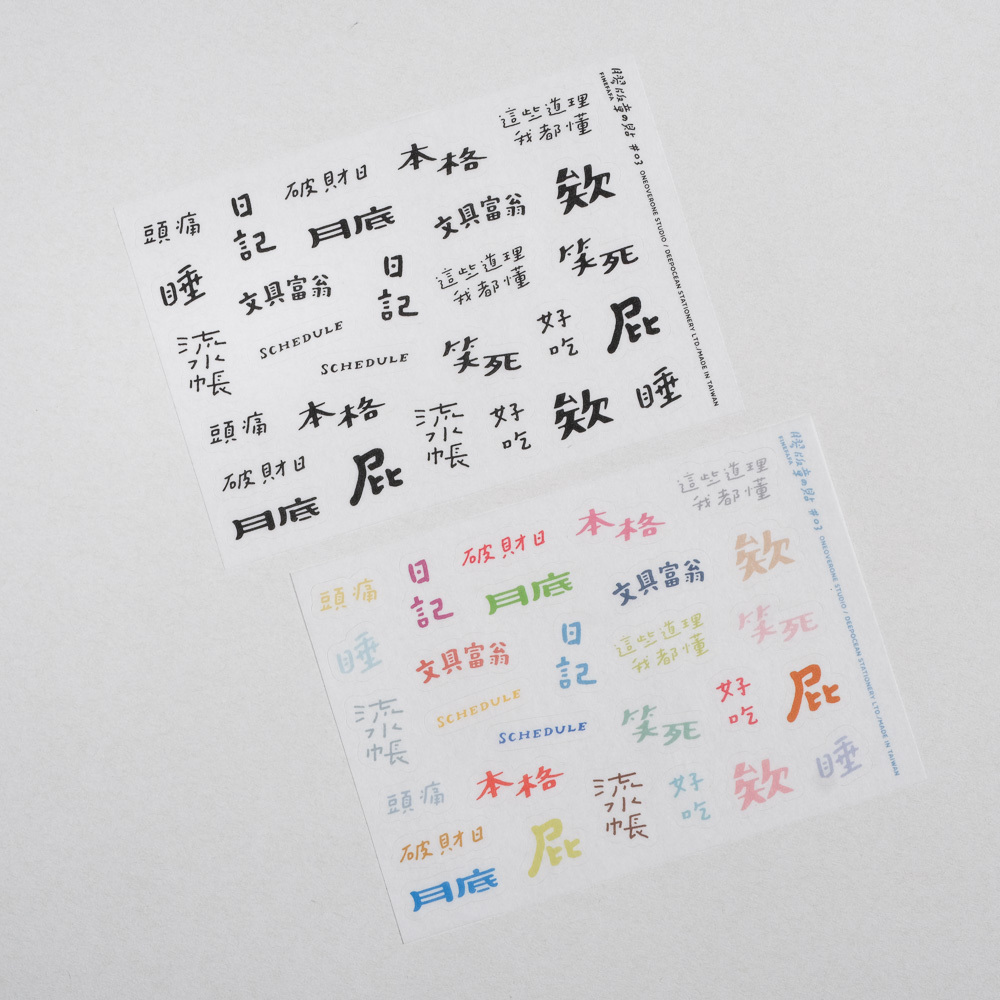 這些道理
我都懂
本格
破財日
日
記
頭痛
欸
文具富翁
月底
睡
笑死
這些道理
我都懂
日
記
文具富翁
流
水
帳
SCHEDULE
SCHEDULE
笑死
好
吃
屁
頭痛
本格
流
水
帳
好
吃
欸
睡
破財日
屁
月底
#03 ONEOVERONE STUDIO / DEEPOCEAN STATIONERY LTD./MADE IN TAIWAN
這些道理
我都懂
本格
破財日
日
記
頭痛
欸
文具富翁
月底
睡
笑死
這些道理
我都懂
日
記
文具富翁
流
水
帳
SCHEDULE
SCHEDULE
笑死
好
吃
屁
頭痛
本格
流
水
帳
好
吃
欸
睡
破財日
屁
月底
#03 ONEOVERONE STUDIO / DEEPOCEAN STATIONERY LTD./MADE IN TAIWAN